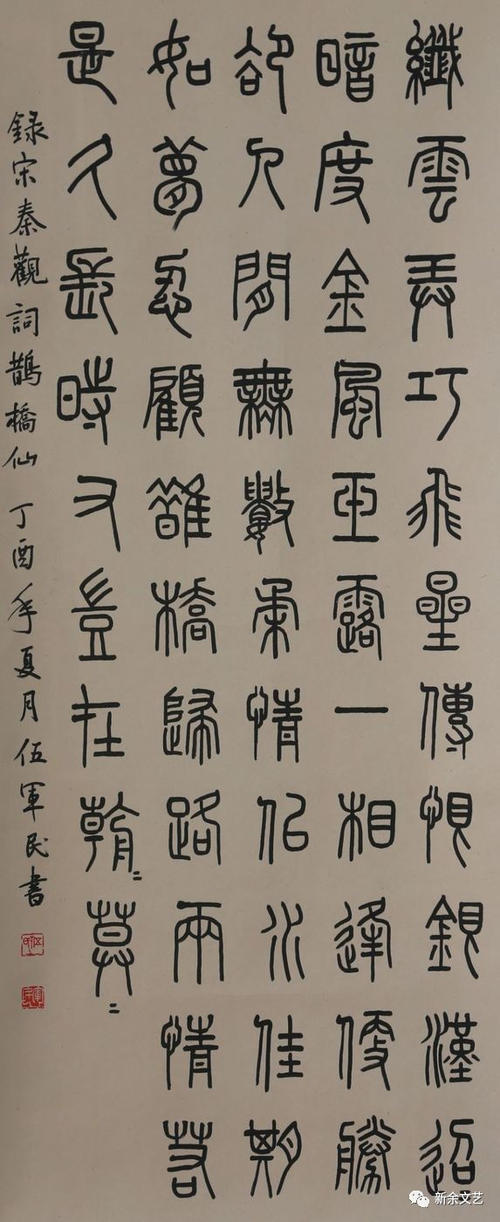 纖雲弄巧飛星傳恨銀漢迢
暗度金風玉露一相逢便勝
卻人間無數柔情似水佳期
如夢忍顧鵲橋歸路兩情若
是久長時又豈在朝〻暮〻
錄宋秦觀詞鵲橋仙 丁酉年夏月伍軍民書
新余文艺